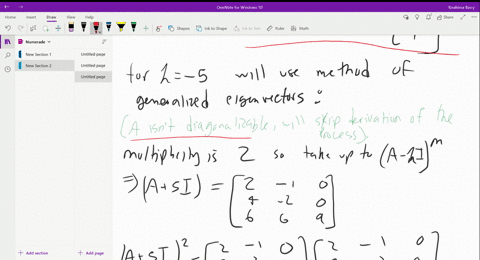 OneNote for Windows 10
Yosafhina Barry
Home Insert Draw View Help
Shapes Ink to Shape Ink to Text Ruler Math
Numerade
New Section 1
New Section 2
Untitled page
Untitled page
Untitled page
[1]
for λ=-5 will use method of
generalized eigenvectors:
(A isn't diagonalizable, will skip derivation of the
process).
multiplicity is 2 so take up to (A-λI)^m
⇒(A+5I) = [2 -1 0
4 -2 0
6 6 9]
(A+5I)^2 = [2 -1 0] [2 -1 0]
+ Add section
+ Add page